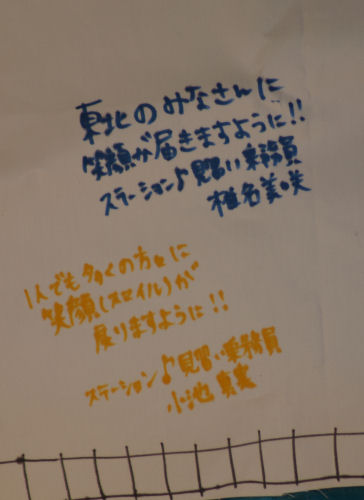 東北のみなさんに
笑顔が届きますように!!
ステーション♪見習い乗務員
椎名美咲
1人でも多くの方々に
笑顔(スマイル)が
戻りますように!!
ステーション♪見習い乗務員
小池真実